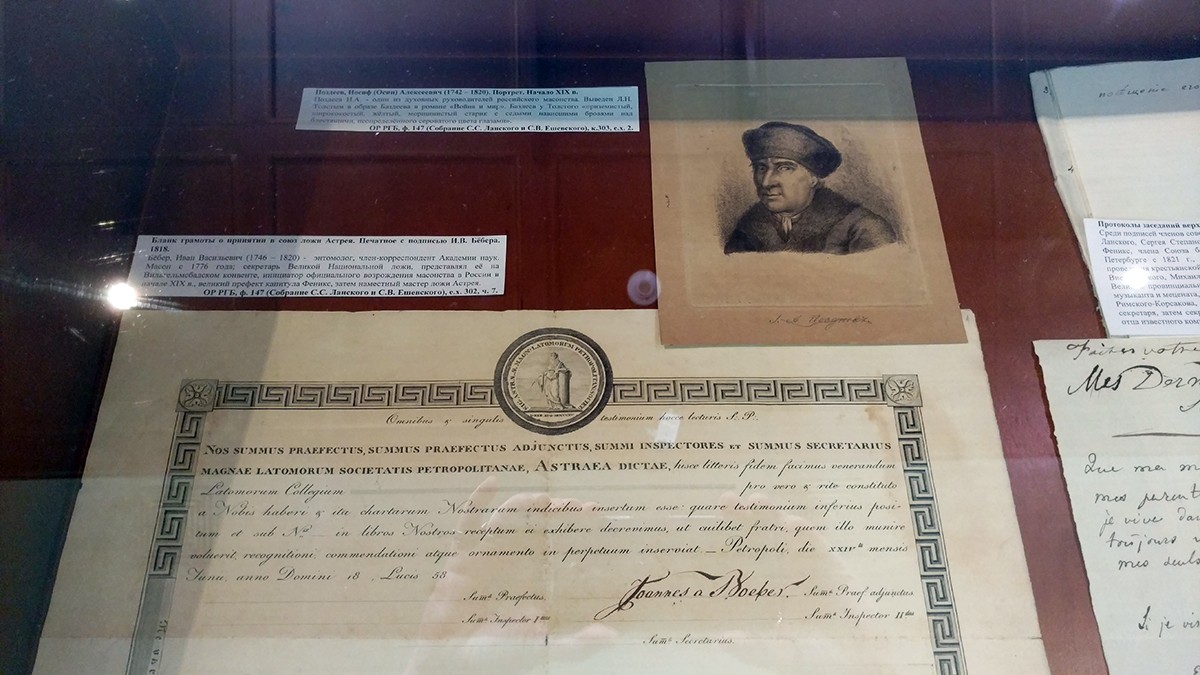 Поздеев, Иосиф (Осип) Алексеевич (1742 – 1820). Портрет. Начало XIX в.
Поздеев И.А. - один из духовных руководителей российского масонства. Выведен Л.Н.
Толстым в образе Баздеева в романе «Война и мир». Баздеев у Толстого «приземистый,
ширококостый, жёлтый, морщинистый старик с седыми нависшими бровями над
блестящими, неопределённого сероватого цвета глазами».
ОР РГБ, ф. 147 (Собрание С.С. Ланского и С.В. Ешевского), к.303, е.х. 2.
Бланк грамоты о принятии в союз ложи Астрея. Печатное с подписью И.В. Бёбера.
1818.
Бёбер, Иван Васильевич (1746 – 1820) - энтомолог, член-корреспондент Академии наук.
Масон с 1776 года; секретарь Великой Национальной ложи, представлял её на
Вильгельмсбадском конвенте, инициатор официального возрождения масонства в России в
начале XIX в., великий префект капитула Феникс, затем наместный мастер ложи Астрея.
ОР РГБ, ф. 147 (Собрание С.С. Ланского и С.В. Ешевского), е.х. 302, ч. 7.
Протоколы заседаний верх
Среди подписей членов сове
Ланского, Сергея Степано
Феникс, члена Союза б
Петербурге с 1821 г.,
крестьянско
Михаил
провинциаль
музыканта и мецената,
Римского-Корсакова,
секретаря, затем секр
отца известного комп
Omnibus & singulis testimonium hocce lecturis S. P.
NOS SUMMUS PRAEFECTUS, SUMMUS PRAEFECTUS ADJUNCTUS, SUMMI INSPECTORES ET SUMMUS SECRETARIUS
MAGNAE LATOMORUM SOCIETATIS PETROPOLITANAE, ASTRAEA DICTAE, hisce litteris fidem facimus venerandum
Latomorum Collegium pro vero & rite constituto
a Nobis haberi & ita chartarum Nostrarum indicibus insertum esse: quare testimonium inferius posi-
tum et sub Nro in libros Nostros receptum ei exhibere decrevimus, ut cuilibet fratri, quem illo munire
voluerit, recognitioni, commendationi atque ornamento in perpetuum inserviat. — Petropoli, die XXIV ta mensis
Junii, anno Domini 18 , Lucis 58
Sums Praefectus. Joannes a Boeber. Sums Praef adjunctus
Sums Inspector Imus Sums Inspector IIdus
Sums Secretarius.
Faites votre
Mes Dern
Que ma m
mes parent
je vive dan
toujours
mes
Si je vis